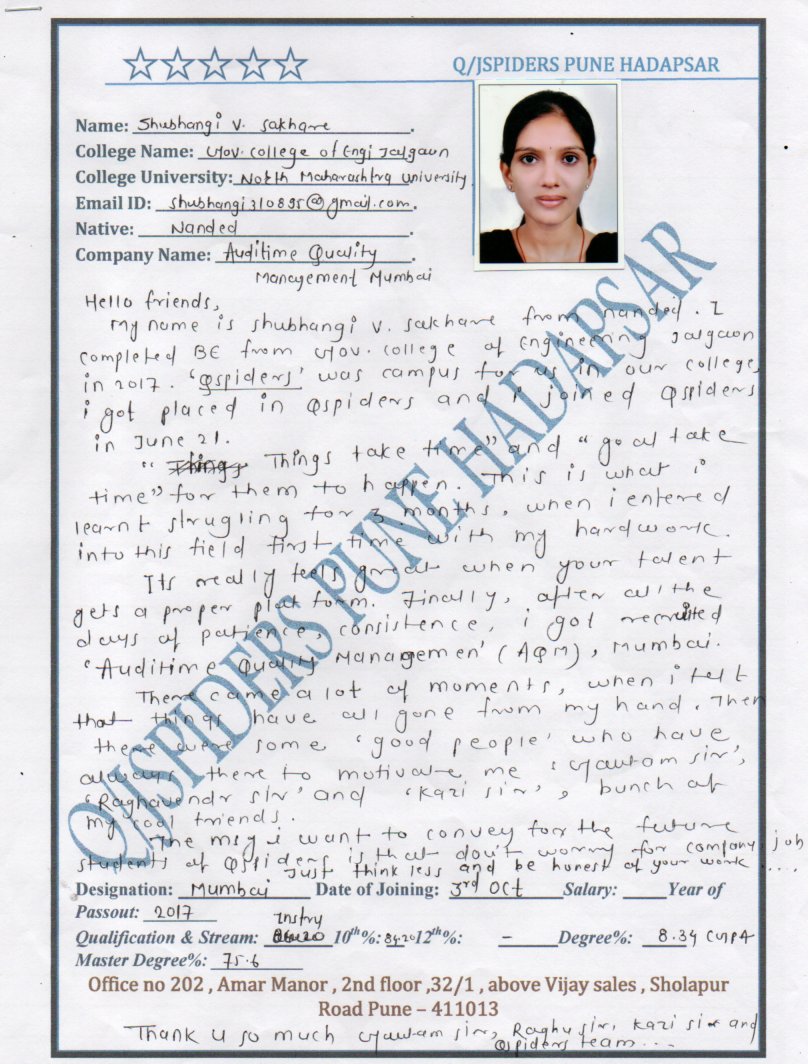 Q/JSPIDERS PUNE HADAPSAR
Name: Shubhangi V. Sakhare.
College Name: Gov. college of Engi Jalgaon
College University: North Maharashtra University
Email ID: shubhangi310895@gmail.com.
Native: Nanded.
Company Name: Auditime Quality.
Management Mumbai
Hello friends,
My name is shubhangi V. Sakhare from nanded. I
completed BE from Gov. college of Engineering Jalgaon
in 2017. 'Qspiders' was campus for us in our college,
i got placed in Qspiders and i joined Qspiders
in June 21.
"Things take time" and "goal take
time" for them to happen. This is what i
learnt strugling for 3 months, when i entered
into this field first time with my hardwork.
Its really feels great when your talent
gets a proper plat form. Finally, after all the
days of patience, consistence, i got recruited
'Auditime Quality Managemen' (AQM), Mumbai.
There came a lot of moments, when i felt
that things have all gone from my hand. Then
there were some 'good people' who have
always there to motivate me 'Gautam sir',
'Raghavendr sir' and 'Kazi sir', bunch of
my cool friends.
The msg i want to convey for the future
students of Qspiders is that don't worry for company, job
Just think less and be honest of your work ....
Designation: Mumbai Date of Joining: 3rd Oct Salary: Year of
Passout: 2017
Instru
Qualification & Stream: 10th%: 84.20 12th%: - Degree%: 8.34 CGPA
Master Degree%: 75.6
Office no 202 , Amar Manor , 2nd floor ,32/1 , above Vijay sales , Sholapur
Road Pune – 411013
Thank u so much Gautam sir, Raghu sir, Kazi sir and
Qspiders team...
Q/JSPIDERS PUNE HADAPSAR